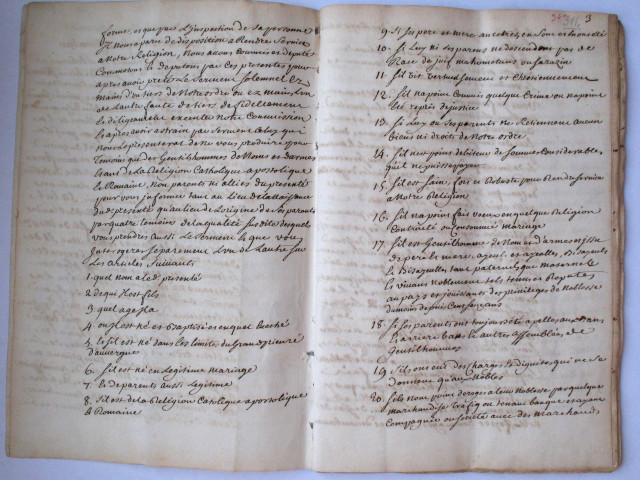 forme, et que par l'Inspection de sa personne
Il nous a paru de disposition a Rendre Service
a Notre Religion, Nous avons Commis et deputé
Commettons et deputons par ces presentes pour
apres avoir presté Le Serment Solemnel ez
mains d'un tiers de Notre ordre ou ez mains L'un
de L'autre faute de tiers de fidellement
Et diligemment executer notre Commission
Et apres avoir astraint par serment Celuy qui
vous Le presentera de ne vous produire pour
Temoins que des Gentilshommes de Nom et d'armes
faisant de La Religion Catholique apostolique
Et Romaine, Non parents ni alliés du presenté
pour vous informer tant au Lieu de La Naissance
du dt presenté qu'au lieu de L'origine de ses parents
par quatre temoins de la qualité susdite desquels
vous prendrés aussi Le Serment Et que vous
Interrogerés separement L'un de L'autre sur
Les articles Suivants
1. quel nom a Led. presenté
2. de qui Il est fils
3. quel age Il a
4. ou Il est né et Baptisé et en quel Evéché
5. Et sil est né dans les limites du Grand prieuré
d'auvergne
6. Sil est né en Legitime mariage
7. Et de parents aussi Legitimes
8. Sil est de La Religion Catolique apostolique
& Romaine
3
9. Si ses pere et mere
10. Si Luy ni ses parens ne descendent pas de
Race de Juif mahometans ou sarazin
11. Sil vit vertueusement et Chretiennement
12. Sil na point Commis quelque Crime ou na point
Eté repris de justice
13. Si Luy ou ses parents ne Retiennent aucun
Biens ni droits de Notre ordre
14. Sil nest point debiteur de sommes Considerables
qu'il ne puisse payer
15. Sil est Sain, fort et Robuste pour Rendre Service
a Notre Religion
16. Sil na point fait voeux en quelque Religion
Contracté ou Consommé mariage
17. Sil est Gentilhomme de Nom et d'armes Issu
de pere et mere, ayeuls et ayeulles, Bisayeuls
Et Bisayeulles tant paternels que maternels
Et vivans Noblement tels tenus et Reputés
au pays et jouissants des privileges de Noblesse
du moins depuis Cent seize ans
18. Si ses parents ont toujours été appellés aux bans
Et arriere bans et autres assemblées de
Gentilhommes
19. Sils ont eu des Charges et dignités qui ne se
donnent qu'aux Nobles
20. Sils nont point derogé a leur Noblesse par quelque
marchandise trafiq ou tenant banque et ayant
Compagnie ou societé avec des marchands